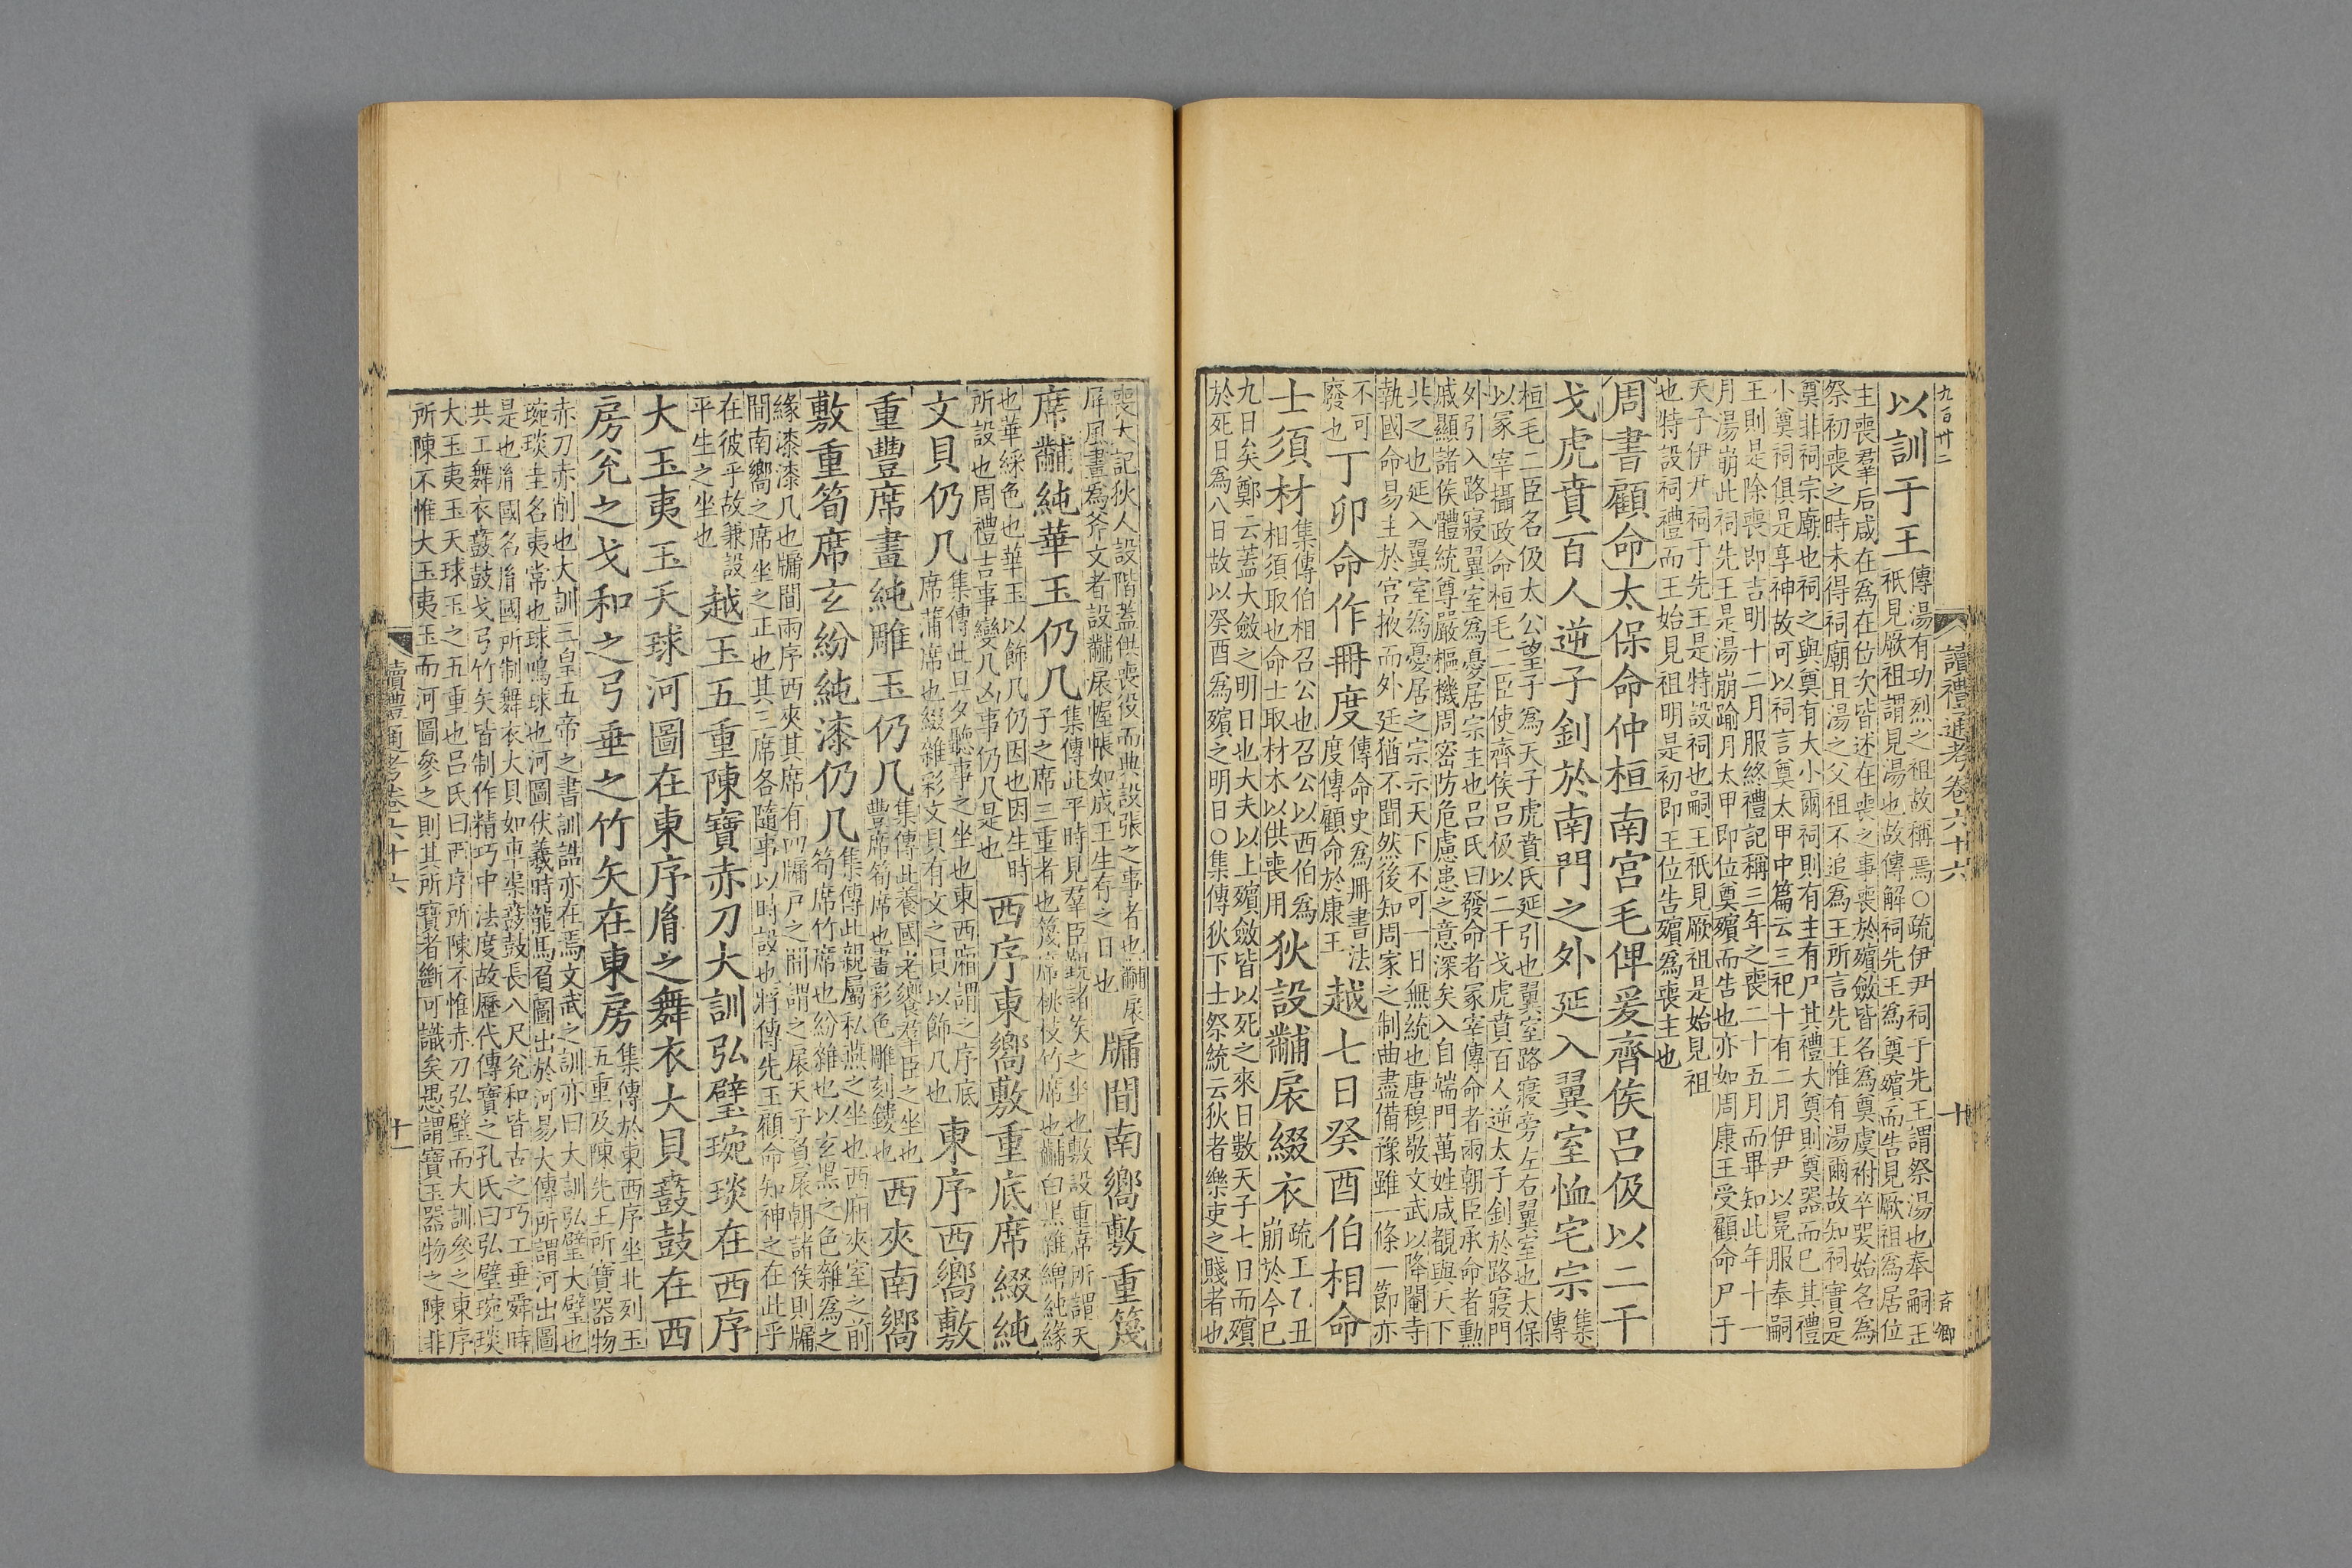 九百卅二
讀禮通考卷六十六
十
以訓于王
傳湯有功烈之祖故稱焉○疏伊尹祠于先王謂祭湯也奉嗣王
祇見厥祖謂見湯也故傳解祠先王爲奠殯而告見厥祖爲居位
主喪羣后咸在爲在位次皆述在喪之事喪於殯斂皆名爲奠虞祔卒哭始名爲
祭初喪之時未得祠廟且湯之父祖不追爲王所言先王惟有湯爾故知祠實是
奠非祠宗廟也祠之與奠有大小爾祠則有主有尸其禮大奠則奠器而已其禮
小奠祠俱是享神故可以祠言奠太甲中篇云三祀十有二月伊尹以冕服奉嗣
王則是除喪即吉明十二月服終禮記稱三年之喪二十五月而畢知此年十一
月湯崩此祠先王是湯崩踰月太甲即位奠殯而告也亦如周康王受顧命尸于
天子伊尹祠于先王是特設祠也嗣王祇見厥祖是始見祖
也特設祠禮而王始見祖明是初即王位告殯爲喪主也
周書顧命太保命仲桓南宮毛俾爰齊侯呂伋以二干
戈虎賁百人逆子釗於南門之外延入翼室恤宅宗
集
傳
桓毛二臣名伋太公望子爲天子虎賁氏延引也翼室路寢旁左右翼室也太保
以冢宰攝政命桓毛二臣使齊侯呂伋以二干戈虎賁百人逆太子釗於路寢門
外引入路寢翼室爲憂居宗主也呂氏曰發命者冢宰傳命者兩朝臣承命者勳
戚顯諸侯體統尊嚴樞機周密防危慮患之意深矣入自端門萬姓咸覩與天下
共之也延入翼室爲憂居之宗示天下不可一日無統也唐穆敬文武以降閹寺
執國命易主於宮掖而外廷猶不聞然後知周家之制曲盡備豫雖一條一節亦
不可
廢也
丁卯命作冊度
傳命史爲冊書法
度傳顧命於康王
越七日癸酉伯相命
士須材
集傳伯相召公也召公以西伯爲
相須取也命士取材木以供喪用
狄設黼扆綴衣
疏王乙丑
崩於今已
九日矣鄭云蓋大斂之明日也大夫以上殯斂皆以死之來日數天子七日而殯
於死日爲八日故以癸酉爲殯之明日○集傳狄下士祭統云狄者樂吏之賤者也
喪大記狄人設階蓋供喪役而典設張之事者也黼扆
屏風畫爲斧文者設黼扆幄帳如成王生存之日也
牖間南嚮敷重篾
席黼純華玉仍几
集傳此平時見羣臣覲諸侯之坐也敷設重席所謂天
子之席三重者也篾席桃枝竹席也黼白黑雜繒純緣
也華綵色也華玉以飾几仍因也因生時
所設也周禮吉事變几凶事仍几是也
西序東嚮敷重底席綴純
文貝仍几
集傳此旦夕聽事之坐也東西廂謂之序底
席蒲席也綴雜彩文貝有文之貝以飾几也
東序西嚮敷
重豐席畫純雕玉仍几
集傳此養國老饗羣臣之坐也
豐席筍席也畫彩色雕刻鏤也
西夾南嚮
敷重筍席玄紛純漆仍几
集傳此親屬私燕之坐也西廂夾室之前
筍席竹席也紛雜也以玄黑之色雜爲之
緣漆漆几也牖間兩序西夾其席有四牖戶之間謂之扆天子負扆朝諸侯則牖
間南嚮之席坐之正也其三席各隨事以時設也將傳先王顧命知神之在此乎
在彼乎故兼設
平生之坐也
越玉五重陳寶赤刀大訓弘璧琬琰在西序
大玉夷玉天球河圖在東序胤之舞衣大貝鼖鼓在西
房兊之戈和之弓垂之竹矢在東房
集傳於東西序坐北列玉
五重及陳先王所寶器物
赤刀赤削也大訓三皇五帝之書訓誥亦在焉文武之訓亦曰大訓弘璧大璧也
琬琰圭名夷常也球鳴球也河圖伏羲時龍馬負圖出於河易大傳所謂河出圖
是也胤國名胤國所制舞衣大貝如車渠鼖鼓長八尺兊和皆古之巧工垂舜時
共工舞衣鼖鼓戈弓竹矢皆制作精巧中法度故歷代傳寶之孔氏曰弘璧琬琰
大玉夷玉天球玉之五重也呂氏曰西序所陳不惟赤刀弘璧而大訓參之東序
所陳不惟大玉夷玉而河圖參之則其所寶者斷可識矣愚謂寶玉器物之陳非
讀禮通考卷六十六
十一